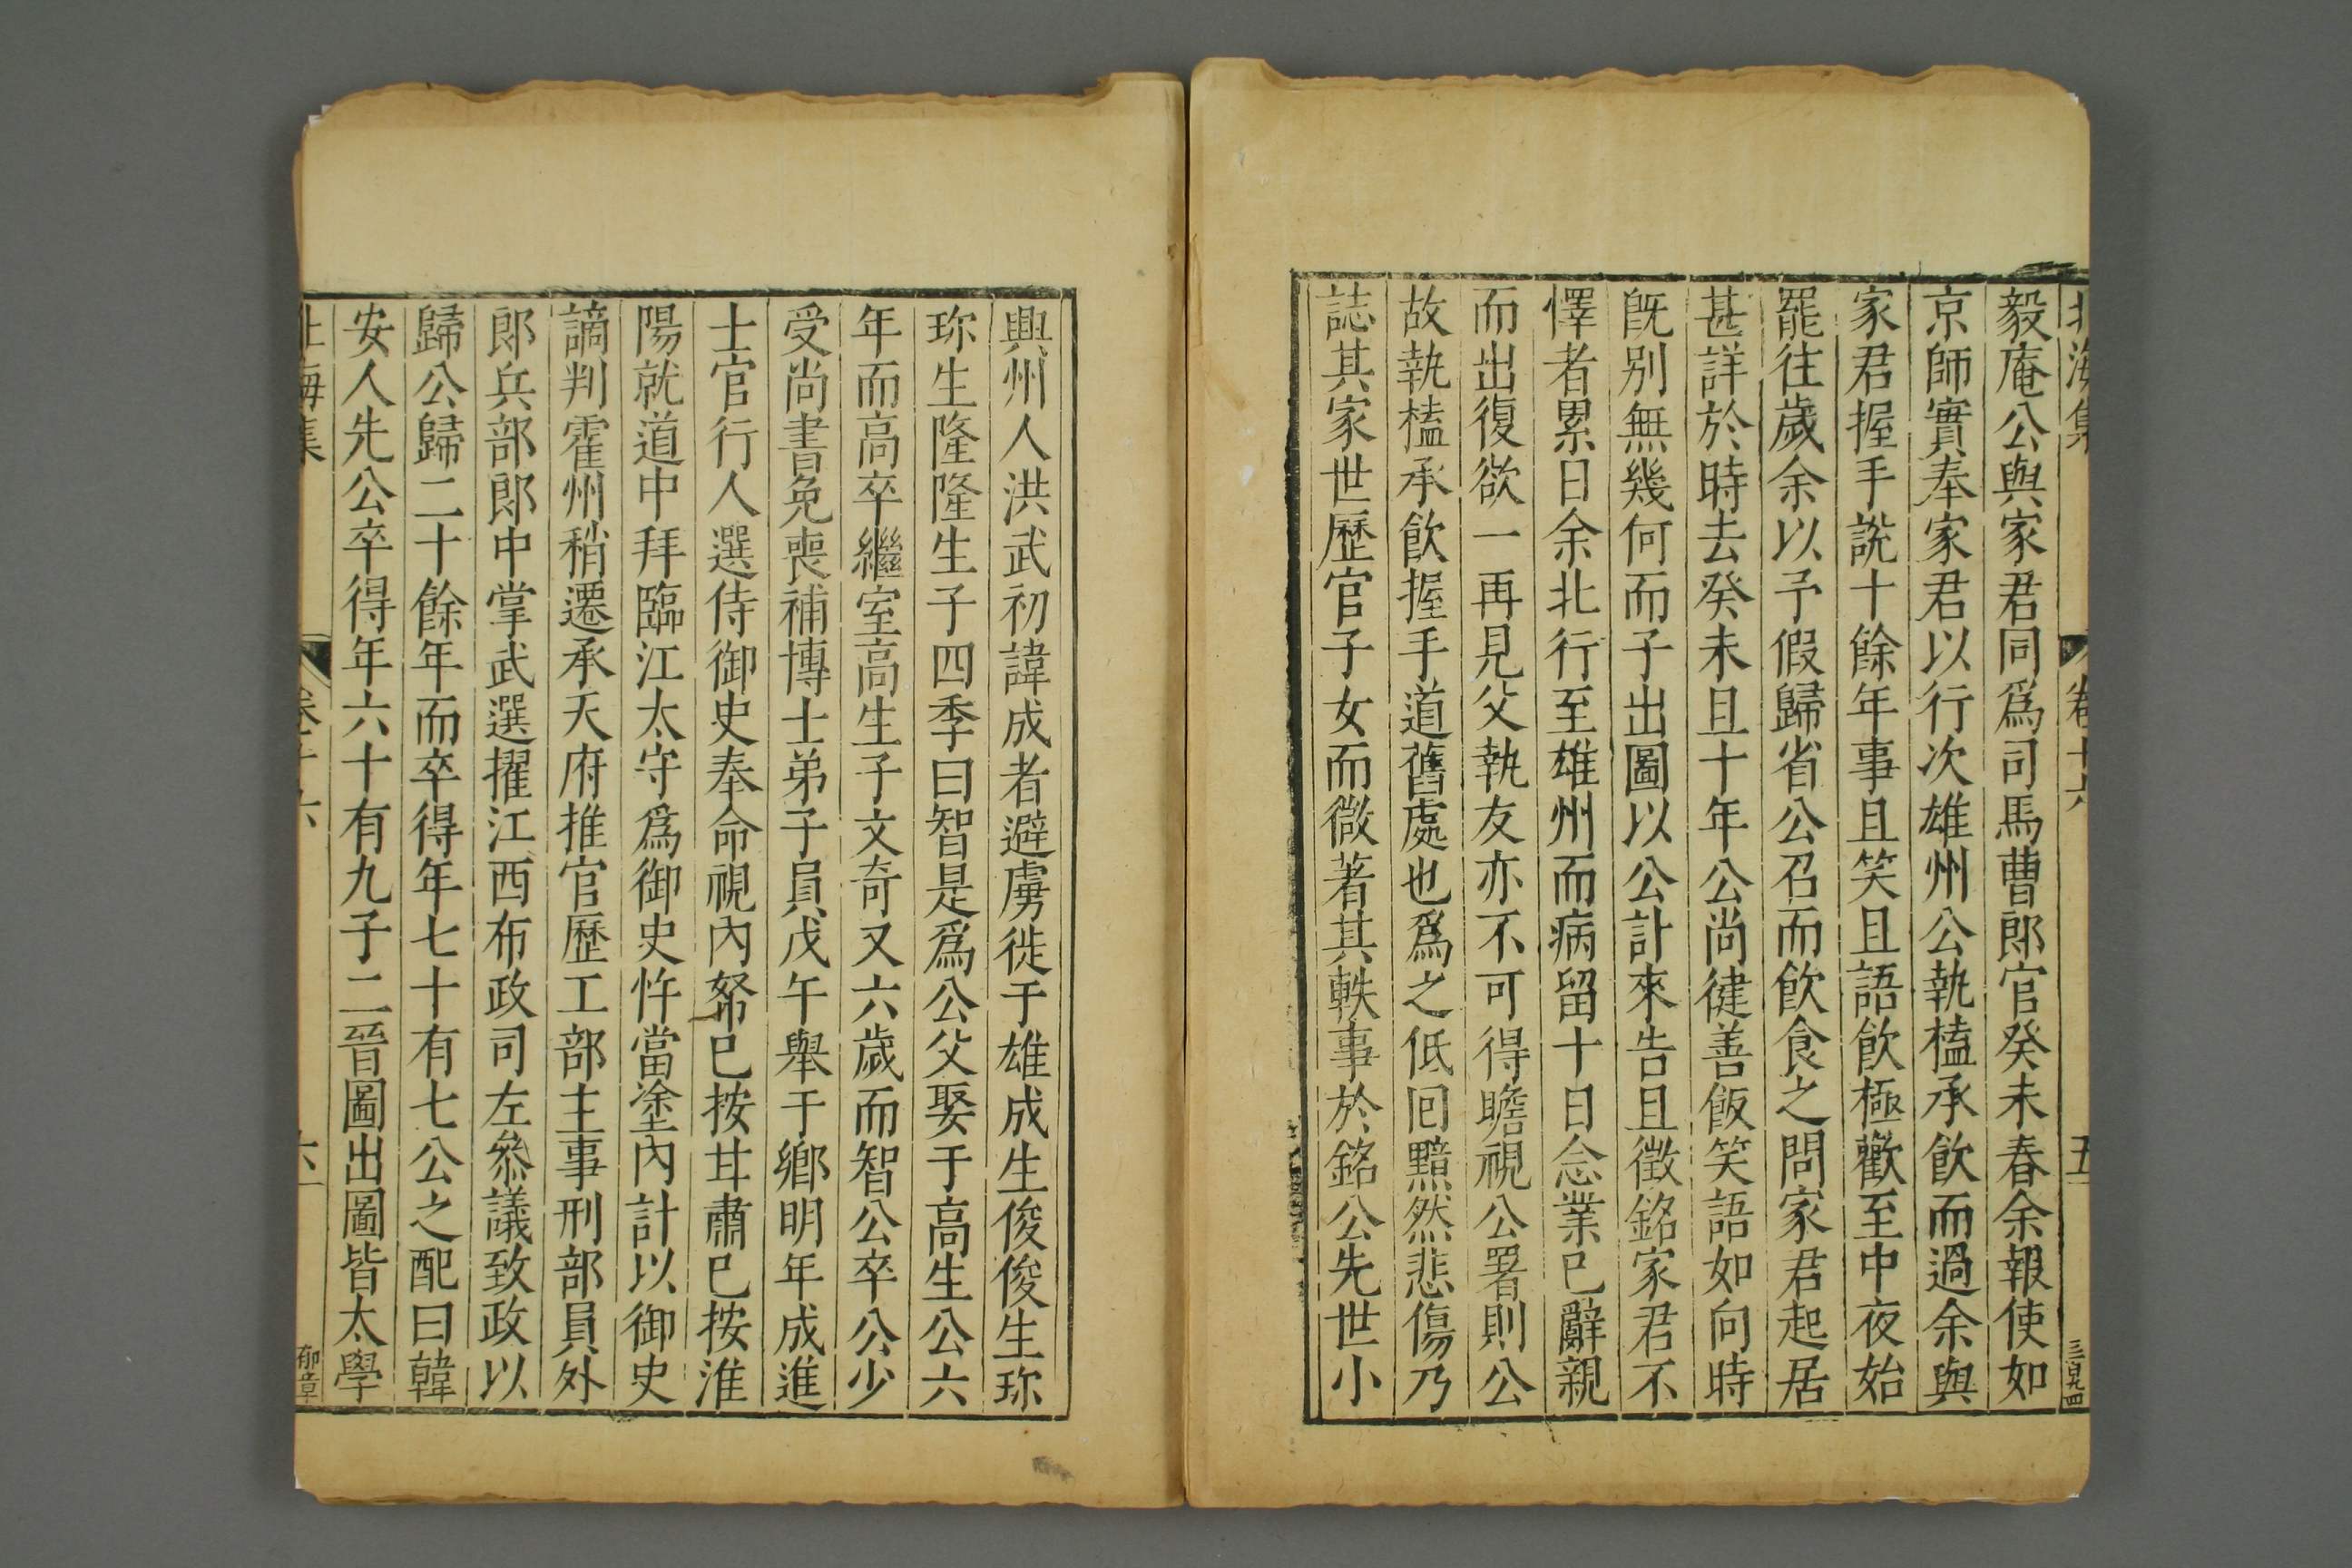 北海集 卷十六 五 三百九四
毅庵公與家君同爲司馬曹郎官癸未春余報使如
京師實奉家君以行次雄州公執榼承飲而過余與
家君握手說十餘年事且笑且語飲極歡至中夜始
罷往歲余以予假歸省公召而飲食之問家君起居
甚詳於時去癸未且十年公尚健善飯笑語如向時
旣別無幾何而子出圖以公訃來告且徵銘家君不
懌者累日余北行至雄州而病留十日念業已辭親
而出復欲一再見父執友亦不可得瞻視公署則公
故執榼承飲握手道舊處也爲之低回黯然悲傷乃
誌其家世歷官子女而微著其軼事於銘公先世小
興州人洪武初諱成者避虜徙于雄成生俊俊生珎
珎生隆隆生子四季曰智是爲公父娶于高生公六
年而高卒繼室高生子文奇又六歲而智公卒公少
受尚書免喪補博士弟子員戊午舉于鄉明年成進
士官行人選侍御史奉命視內帑已按甘肅已按淮
陽就道中拜臨江太守爲御史忤當塗內計以御史
謫判霍州稍遷承天府推官歷工部主事刑部員外
郎兵部郎中掌武選擢江西布政司左叅議致政以
歸公歸二十餘年而卒得年七十有七公之配曰韓
安人先公卒得年六十有九子二晉圖出圖皆太學
北海集 卷十六 六 郁章